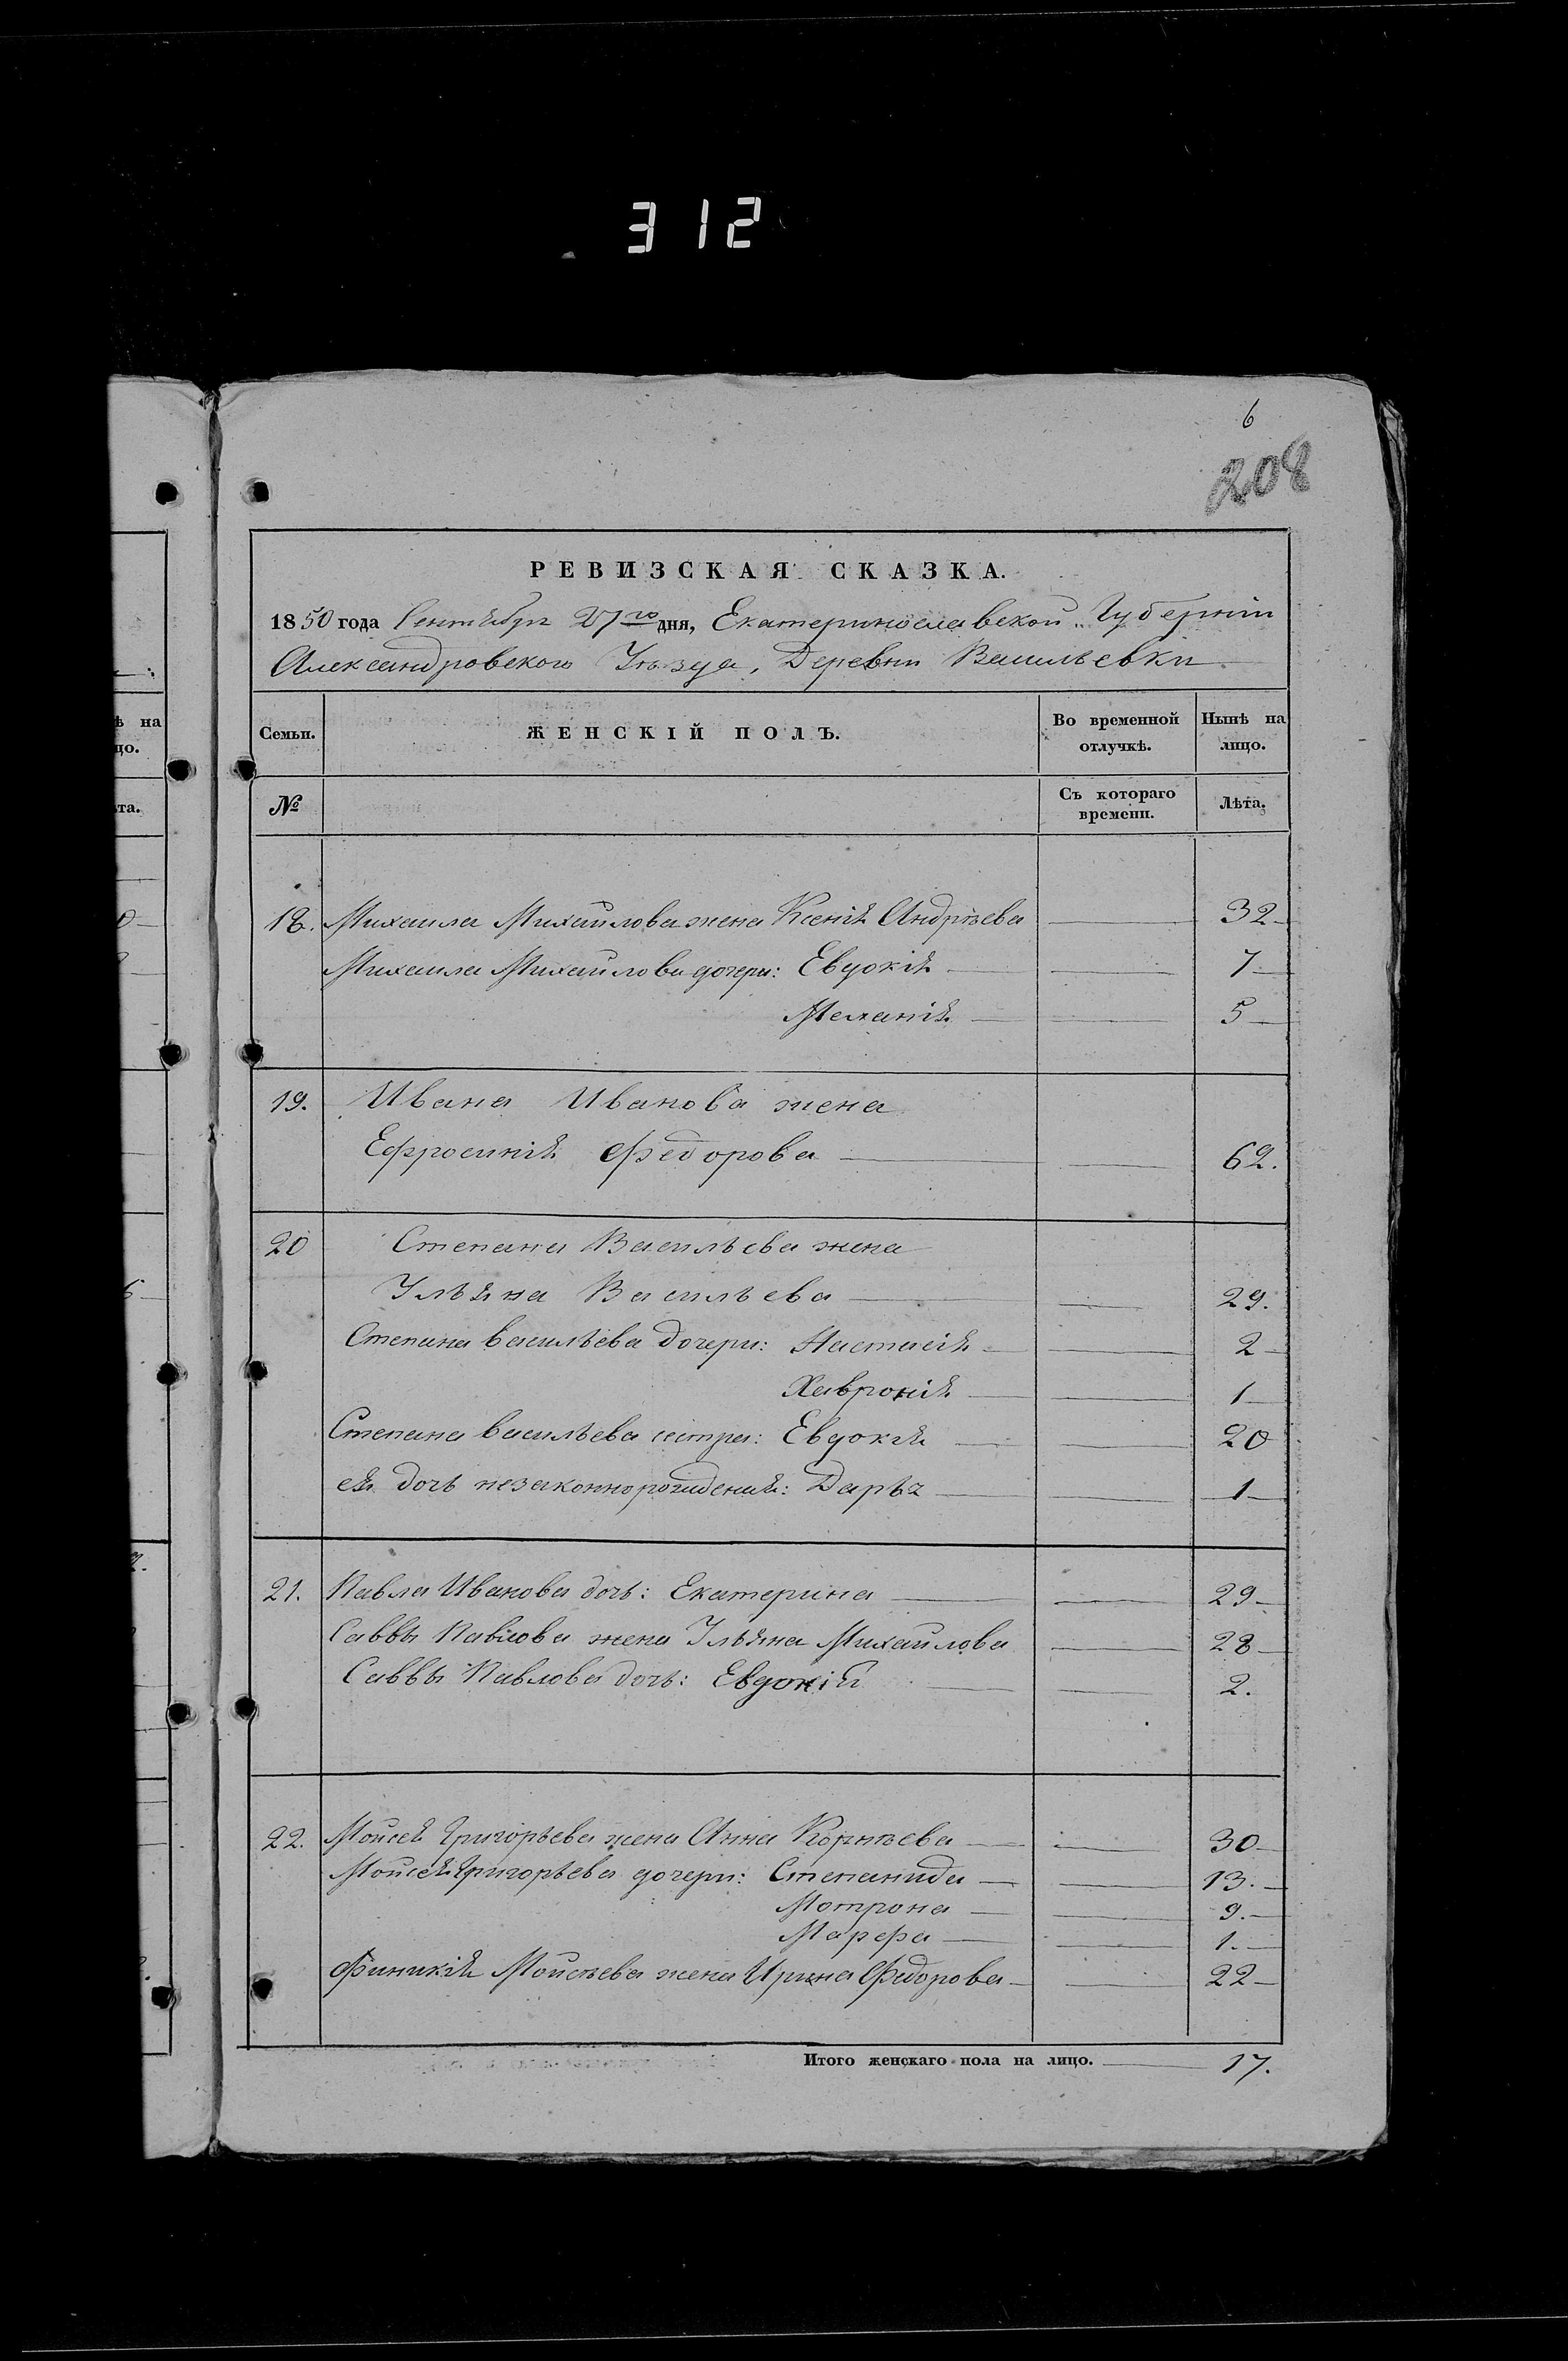 312
6
208
РЕВИЗСКАЯ СКАЗКА.
1850 года Сентября 27го дня, Екатеринославской Губерніи
Александровского Уѣзда, Деревни Васильевки
Семьи. ЖЕНСКІЙ ПОЛЪ. Во временной отлучкѣ. Нынѣ на лицо.
№ Съ котораго времени. Лѣта.
18. Михаила Михайлова жена Ксенія Андрѣева 32
Михаила Михайлова дочери: Евдокія 7
Меланія 5
19. Ивана Иванова жена
Ефросинія Федорова 62.
20 Степана Васильева жена
Ульяна Васильева 29.
Степана васильева дочери: Настасія 2
Хавронія 1
Степана васильева сестра: Евдокія 20
ея дочь незаконнорожденая: Дарья 1
21. Павла Иванова дочь: Екатерина 29
Саввы Павлова жена Ульяна Михайлова 28
Саввы Павлова дочь: Евдокія 2.
22. Мойсея Григорьева жена Анна Корнѣева 30
Мойсея Григорьева дочери: Степанида 13.
Мотрона 9.
Марфа 1.
Финикія Мойсѣева жена Ирина Федорова 22
Итого женскаго пола на лицо. 17.
ѣ на
цо.
ѣта.